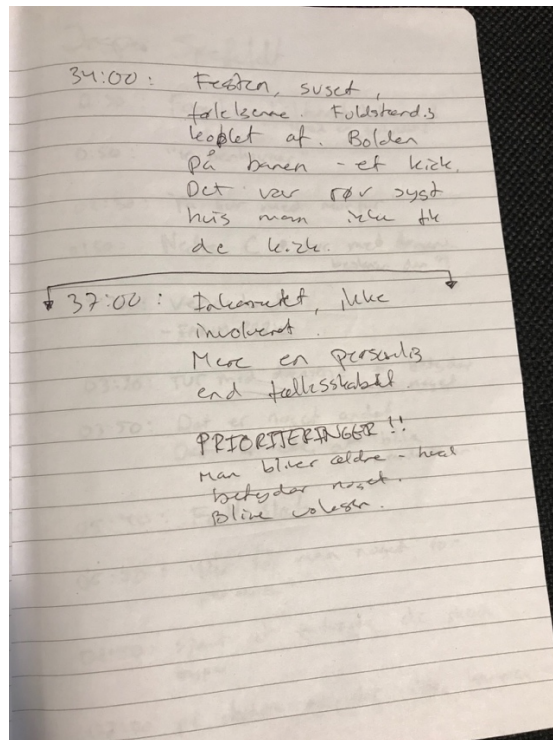 34:00: Festen, suset,
følelserne. Fuldstændig
koblet af. Bolden
på banen - et kick.
Det var røv sygt
hvis man ikke fik
de kick.
37:00: Inkarneret, ikke
involveret.
Mere en personlig
end fællesskabet.
PRIORITERINGER!!
Man bliver ældre - hvad
betyder noget.
Blive voksen.